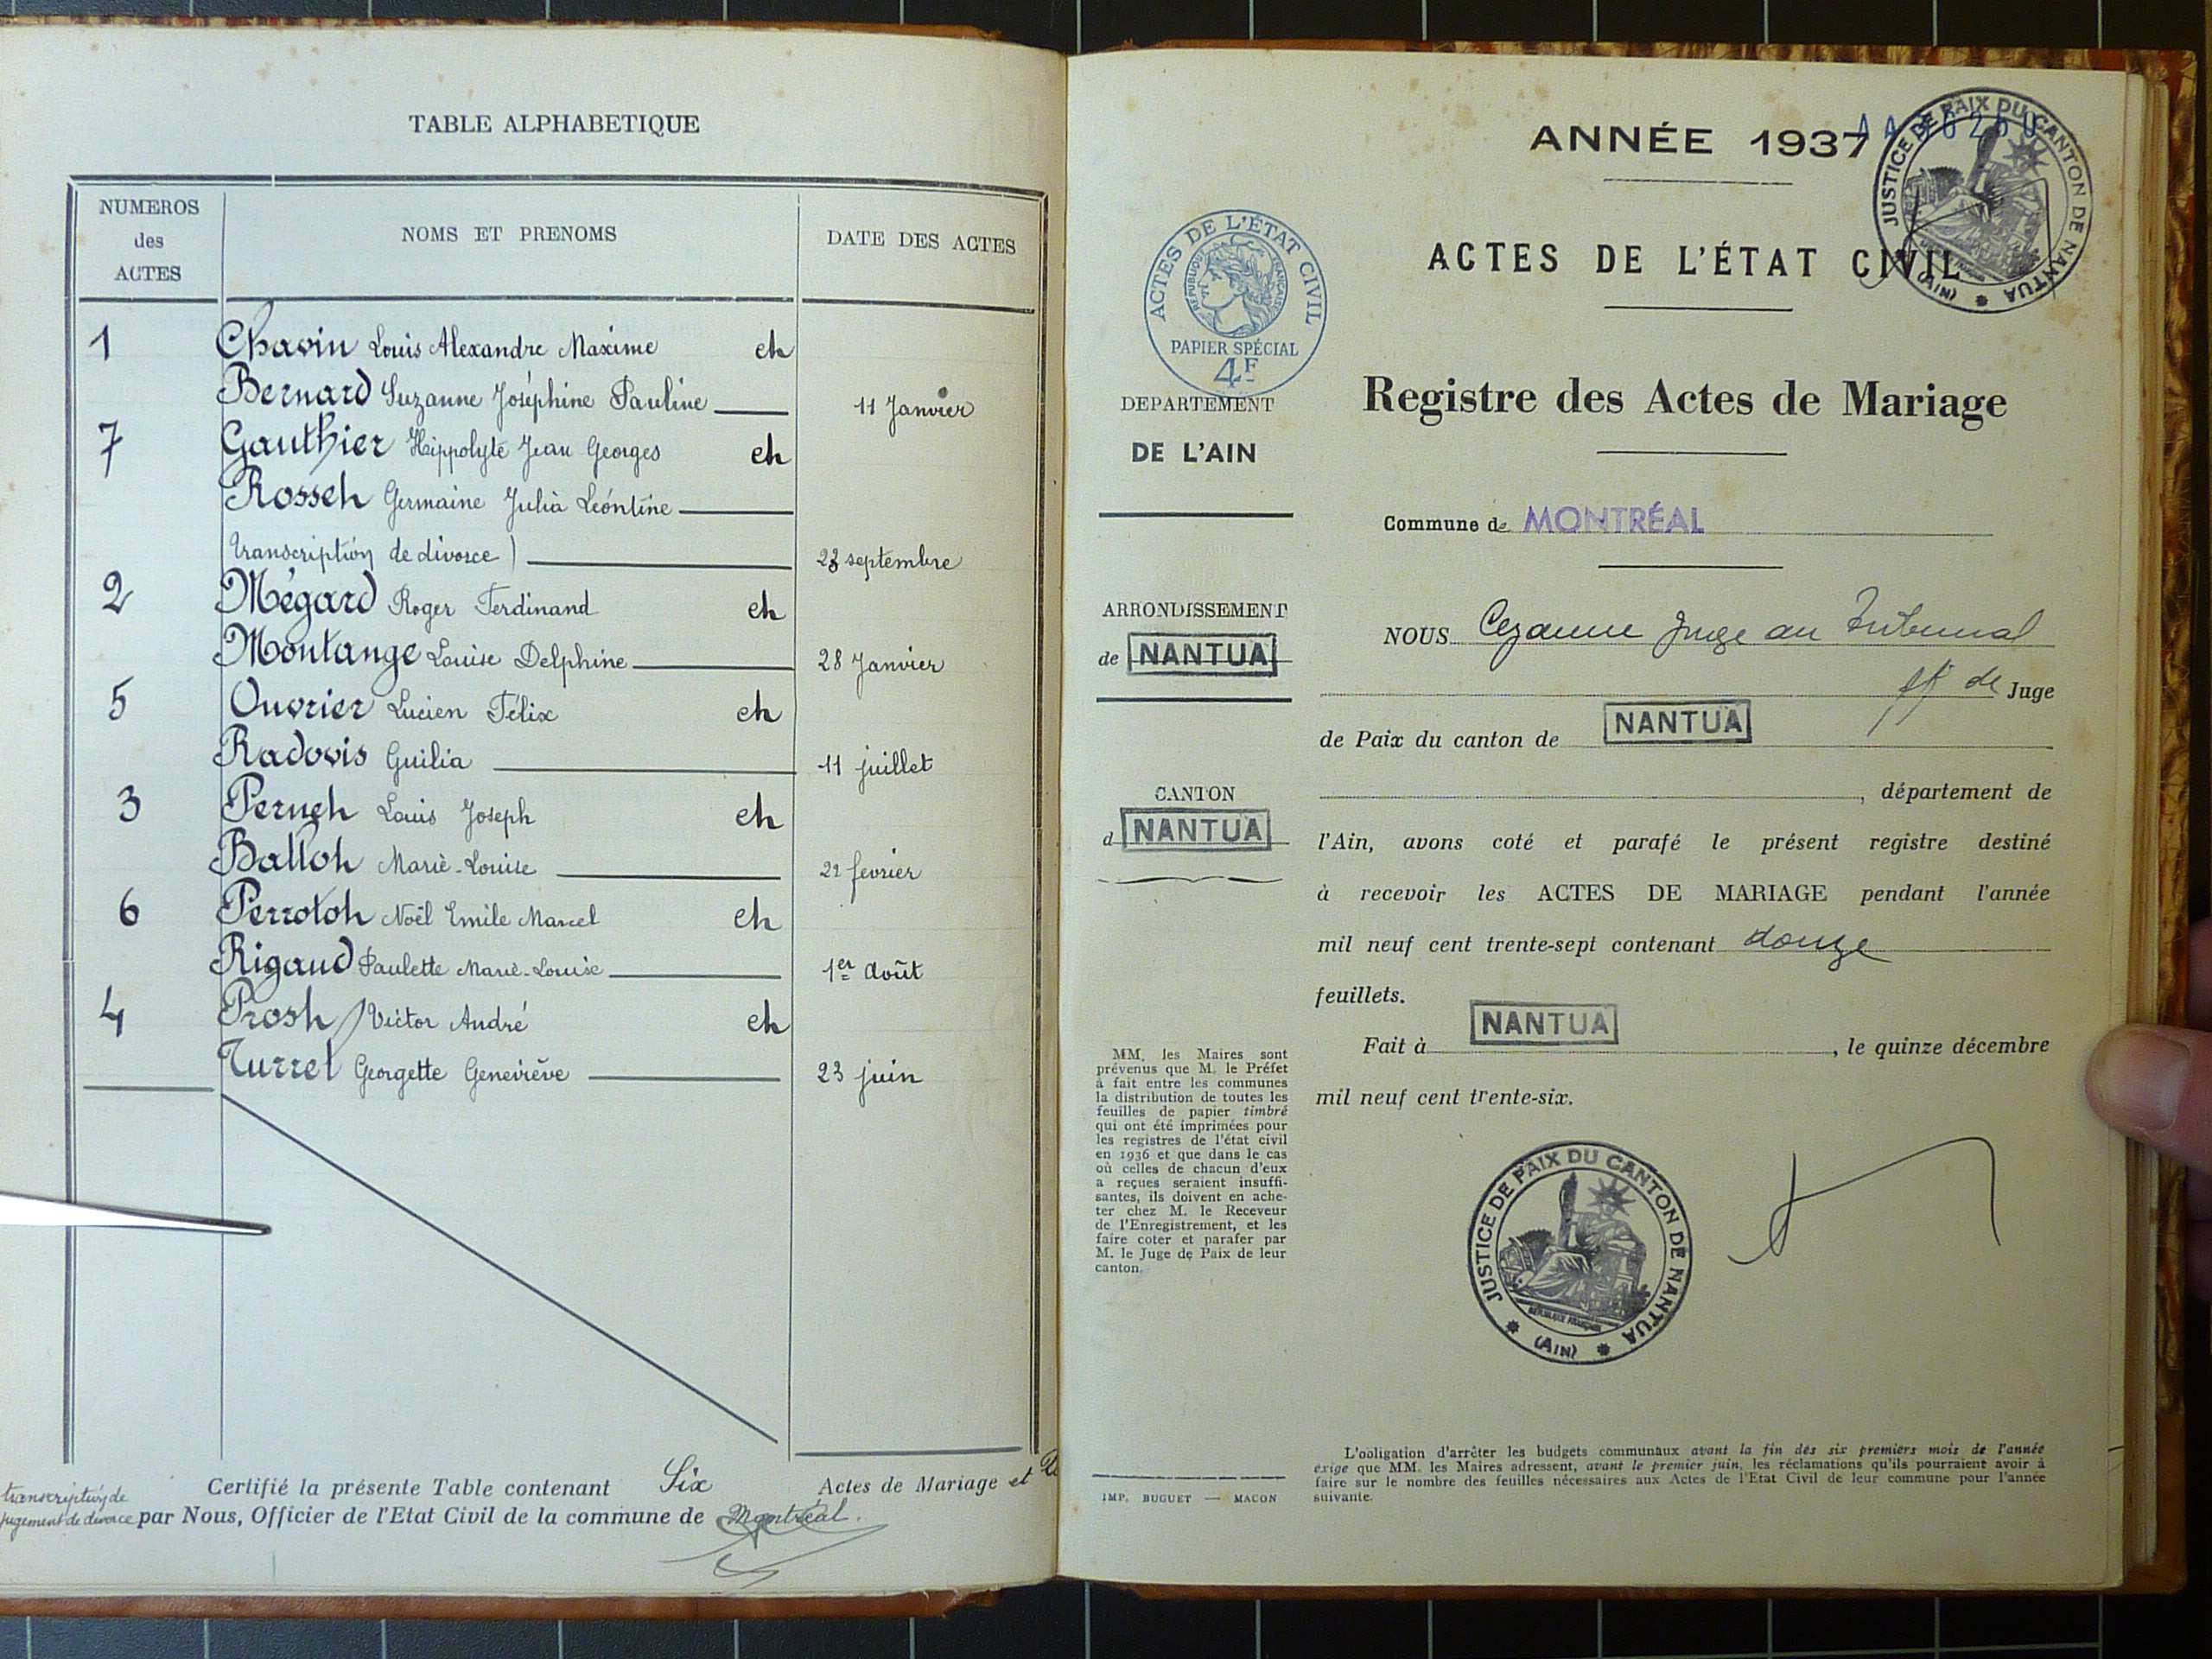 TABLE ALPHABETIQUE
NUMEROS
des
ACTES
NOMS ET PRENOMS
DATE DES ACTES
1 Chavin Louis Alexandre Maxime et
Bernard Suzanne Joséphine Pauline 11 Janvier
7 Gauthier Hippolyte Jean Georges et
Rosset Germaine Julia Léontine
transcription de divorce) 23 septembre
2 Mégard Roger Ferdinand et
Montange Louise Delphine 28 Janvier
5 Ouvrier Lucien Félix et
Radovis Guilia 11 juillet
3 Pernet Louis Joseph et
Ballot Marie-Louise 22 fevrier
6 Perrotot Noël Emile Marcel et
Rigaud Paulette Marie-Louise 1er Août
4 Prost Victor André et
Turrel Georgette Geneviève 23 juin
Certifié la présente Table contenant Six Actes de Mariage et
transcription de
jugement de divorce par Nous, Officier de l'Etat Civil de la commune de Montréal.
ANNÉE 1937
JUSTICE DE PAIX DU CANTON DE NANTUA
(AIN)
ACTES DE L'ÉTAT CIVIL
ACTES DE L'ÉTAT CIVIL
RÉPUBLIQUE FRANÇAISE
PAPIER SPÉCIAL
4F
DEPARTEMENT
DE L'AIN
Registre des Actes de Mariage
Commune de MONTRÉAL
ARRONDISSEMENT
de NANTUA
CANTON
d NANTUA
NOUS Cezanne Juge au Tribunal
ff de Juge
de Paix du canton de NANTUA
, département de
l'Ain, avons coté et parafé le présent registre destiné
à recevoir les ACTES DE MARIAGE pendant l'année
mil neuf cent trente-sept contenant douze
feuillets.
Fait à NANTUA, le quinze décembre
mil neuf cent trente-six.
MM. les Maires sont
prévenus que M. le Préfet
à fait entre les communes
la distribution de toutes les
feuilles de papier timbré
qui ont été imprimées pour
les registres de l'état civil
en 1936 et que dans le cas
où celles de chacun d'eux
a reçues seraient insuffi-
santes, ils doivent en ache-
ter chez M. le Receveur
de l'Enregistrement, et les
faire coter et parafer par
M. le Juge de Paix de leur
canton.
JUSTICE DE PAIX DU CANTON DE NANTUA
(AIN)
IMP. BUGUET — MACON
L'obligation d'arrêter les budgets communaux avant la fin des six premiers mois de l'année
exige que MM. les Maires adressent, avant le premier juin, les réclamations qu'ils pourraient avoir à
faire sur le nombre des feuilles nécessaires aux Actes de l'Etat Civil de leur commune pour l'année
suivante.